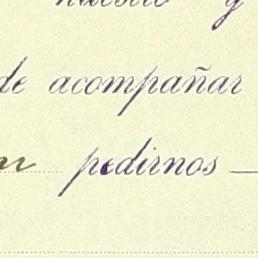 nuestro y
de acompañar
pedirnos